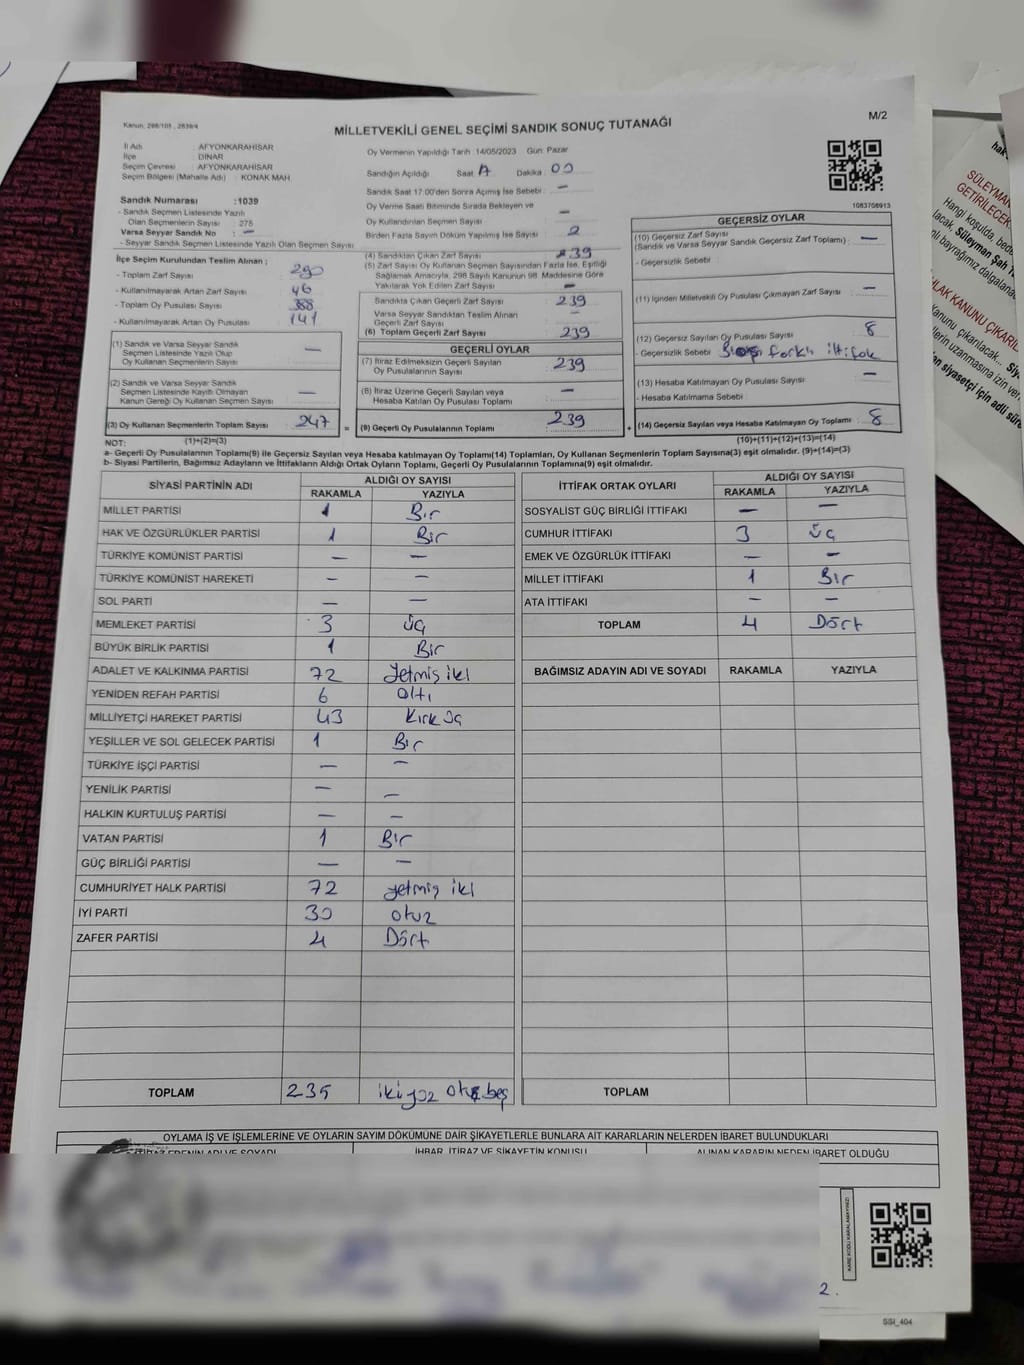 Kanun, 298/105 , 2839/4
M/2
MİLLETVEKİLİ GENEL SEÇİMİ SANDIK SONUÇ TUTANAĞI
İl Adı : AFYONKARAHİSAR
İlçe : DİNAR
Seçim Çevresi : AFYONKARAHİSAR
Seçim Bölgesi (Mahalle Adı) : KONAK MAH.
Oy Vermenin Yapıldığı Tarih :14/05/2023 Gün: Pazar
Sandığın Açıldığı Saat: Dakika: 00
Sandık Saat 17:00'den Sonra Açımış İse Sebebi : —
Oy Verme Saati Bitiminde Sırada Bekleyen ve
Oy Kullandırılan Seçmen Sayısı : —
Birden Fazla Sayım Döküm Yapılmış İse Sayısı :
1083708913
Sandık Numarası :1039
- Sandık Seçmen Listesinde Yazılı
Olan Seçmenlerin Sayısı : 275
Varsa Seyyar Sandık No : —
- Seyyar Sandık Seçmen Listesinde Yazılı Olan Seçmen Sayısı
İlçe Seçim Kurulundan Teslim Alınan ;
- Toplam Zarf Sayısı : 290
- Kullanılmayarak Artan Zarf Sayısı : 46
- Toplam Oy Pusulası Sayısı : 388
- Kullanılmayarak Artan Oy Pusulası : 141
(1) Sandık ve Varsa Seyyar Sandık
Seçmen Listesinde Yazılı Olup
Oy Kullanan Seçmenlerin Sayısı : —
(2) Sandık ve Varsa Seyyar Sandık
Seçmen Listesinde Kayıtlı Olmayan
Kanun Gereği Oy Kullanan Seçmen Sayısı : —
(3) Oy Kullanan Seçmenlerin Toplam Sayısı : 247 =
(4) Sandıktan Çıkan Zarf Sayısı : 239
(5) Zarf Sayısı Oy Kullanan Seçmen Sayısından Fazla İse, Eşitliği
Sağlamak Amacıyla, 298 Sayılı Kanunun 98. Maddesine Göre
Yakılarak Yok Edilen Zarf Sayısı : —
Sandıkta Çıkan Geçerli Zarf Sayısı : 239
Varsa Seyyar Sandıktan Teslim Alınan
Geçerli Zarf Sayısı : —
(6) Toplam Geçerli Zarf Sayısı : 239
GEÇERLİ OYLAR
(7) İtiraz Edilmeksizin Geçerli Sayılan
Oy Pusulalarının Sayısı : 239
(8) İtiraz Üzerine Geçerli Sayılan veya
Hesaba Katılan Oy Pusulası Toplamı : —
(9) Geçerli Oy Pusulalarının Toplamı : 239 +
GEÇERSİZ OYLAR
(10) Geçersiz Zarf Sayısı
(Sandık ve Varsa Seyyar Sandık Geçersiz Zarf Toplamı) : —
- Geçersizlik Sebebi :
(11) İçinden Milletvekili Oy Pusulası Çıkmayan Zarf Sayısı : —
(12) Geçersiz Sayılan Oy Pusulası Sayısı : 8
- Geçersizlik Sebebi : farklı ittifak
(13) Hesaba Katılmayan Oy Pusulası Sayısı : —
- Hesaba Katılmama Sebebi :
(14) Geçersiz Sayılan veya Hesaba Katılmayan Oy Toplamı : 8
NOT: (1)+(2)=(3) (10)+(11)+(12)+(13)=(14)
a- Geçerli Oy Pusulalarının Toplamı(9) ile Geçersiz Sayılan veya Hesaba katılmayan Oy Toplamı(14) Toplamları, Oy Kullanan Seçmenlerin Toplam Sayısına(3) eşit olmalıdır. (9)+(14)=(3)
b- Siyasi Partilerin, Bağımsız Adayların ve İttifakların Aldığı Ortak Oyların Toplamı, Geçerli Oy Pusulalarının Toplamına(9) eşit olmalıdır.
SİYASİ PARTİNİN ADI ALDIĞI OY SAYISI
RAKAMLA YAZIYLA
MİLLET PARTİSİ 1 Bir
HAK VE ÖZGÜRLÜKLER PARTİSİ 1 Bir
TÜRKİYE KOMÜNİST PARTİSİ — —
TÜRKİYE KOMÜNİST HAREKETİ — —
SOL PARTİ — —
MEMLEKET PARTİSİ 3 üç
BÜYÜK BİRLİK PARTİSİ 1 Bir
ADALET VE KALKINMA PARTİSİ 72 yetmiş iki
YENİDEN REFAH PARTİSİ 6 altı
MİLLİYETÇİ HAREKET PARTİSİ 43 Kırk üç
YEŞİLLER VE SOL GELECEK PARTİSİ 1 Bir
TÜRKİYE İŞÇİ PARTİSİ — —
YENİLİK PARTİSİ — —
HALKIN KURTULUŞ PARTİSİ — —
VATAN PARTİSİ 1 Bir
GÜÇ BİRLİĞİ PARTİSİ — —
CUMHURİYET HALK PARTİSİ 72 yetmiş iki
İYİ PARTİ 30 otuz
ZAFER PARTİSİ 4 Dört
TOPLAM 235 iki yüz otuz beş
İTTİFAK ORTAK OYLARI ALDIĞI OY SAYISI
RAKAMLA YAZIYLA
SOSYALİST GÜÇ BİRLİĞİ İTTİFAKI — —
CUMHUR İTTİFAKI 3 üç
EMEK VE ÖZGÜRLÜK İTTİFAKI — —
MİLLET İTTİFAKI 1 Bir
ATA İTTİFAKI — —
TOPLAM 4 Dört
BAĞIMSIZ ADAYIN ADI VE SOYADI RAKAMLA YAZIYLA
TOPLAM
OYLAMA İŞ VE İŞLEMLERİNE VE OYLARIN SAYIM DÖKÜMÜNE DAİR ŞİKAYETLERLE BUNLARA AİT KARARLARIN NELERDEN İBARET BULUNDUKLARI
İTİRAZ EDENİN ADI VE SOYADI İHBAR, İTİRAZ VE ŞİKAYETİN KONUSU ALINAN KARARIN NEDEN İBARET OLDUĞU
KARE KODU KARALAMAYINIZ!
2.
SSI_404
SÜLEYMAN
GETİRİLECEK
Hangi koşulda, bede
Süleyman Şah T
bayrağımız dalgalana
KANUNU ÇIKARIL
Kanunu çıkarılacak...
uzanmasına izin ver
siyasetçi için adli